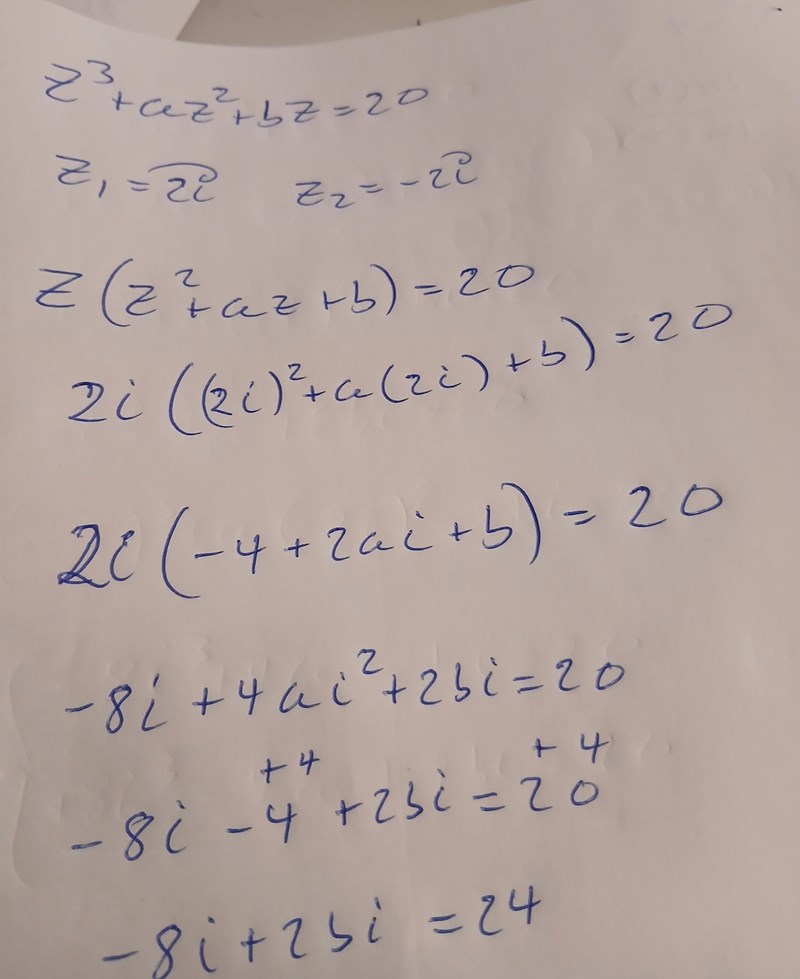 z³+az²+bz=20
z₁=2i z₂=-2i
z(z²+az+b)=20
2i((2i)²+a(2i)+b)=20
2i(-4+2ai+b)=20
-8i+4ai²+2bi=20
+4 +4
-8i-4+2bi=20
-8i+2bi=24